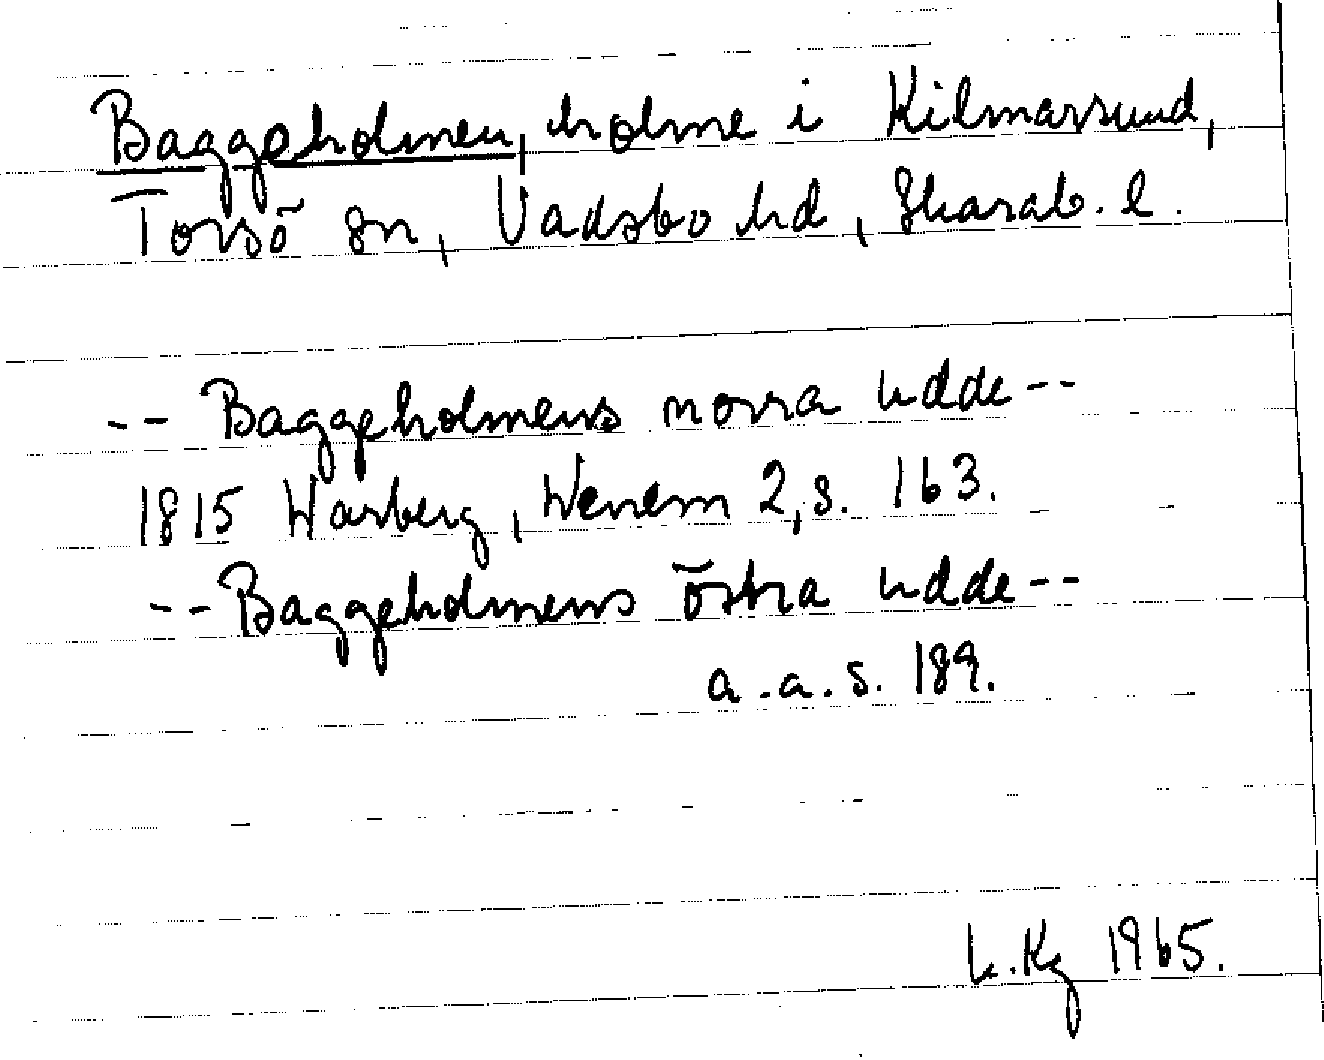 Baggeholmen, holme i Kilmarsund,
Torsö sn, Vadsbo hd, Skarab. l.
-- Baggeholmens norra udde --
1815 Warberg, Wenern 2, s. 163.
-- Baggeholmens östra udde --
a.a.s. 189.
Kg 1965.